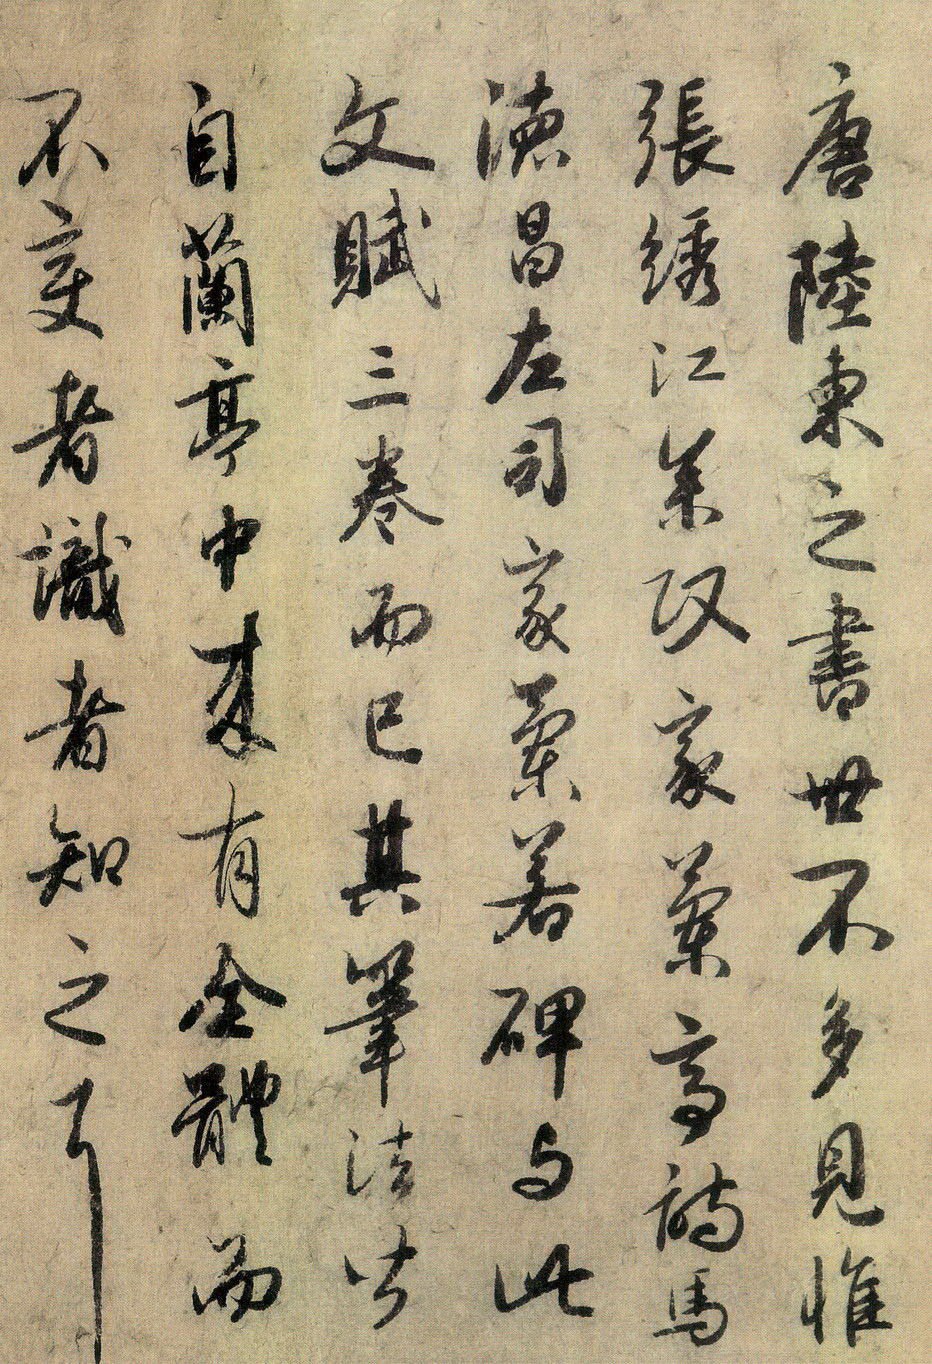 唐陸柬之書世不多見惟
張綉江參政家蘭亭詩馬
德昌左司家蘭若碑与此
文賦三卷而已其筆法皆
自蘭亭中來有全體而
不變者識者知之耳